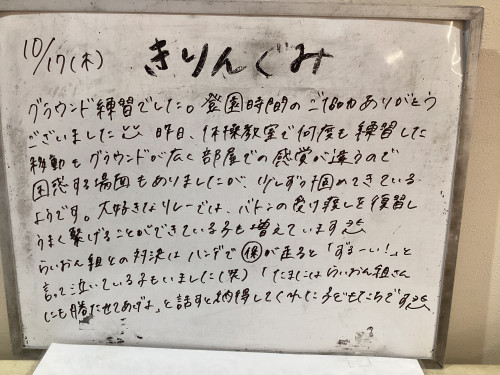 10/17(木)
きりんぐみ
グラウンド練習でした。登園時間のご協力ありがとう
ございました 昨日、体操教室で何度も練習した
移動もグラウンドが広く部屋での感覚が違うので
困惑する場面もありましたが、少しずつ固めてきている
ようです。大好きなリレーでは、バトンの受け渡しを練習し
うまく繋げることができている子も増えています
らいおん組との対決はハンデで保が走ると「ずるーい!」と
言って泣いている子もいました(笑)「たまにはらいおん組さん
にも勝たせてあげよ」と話すと納得してくれた子どもたちです